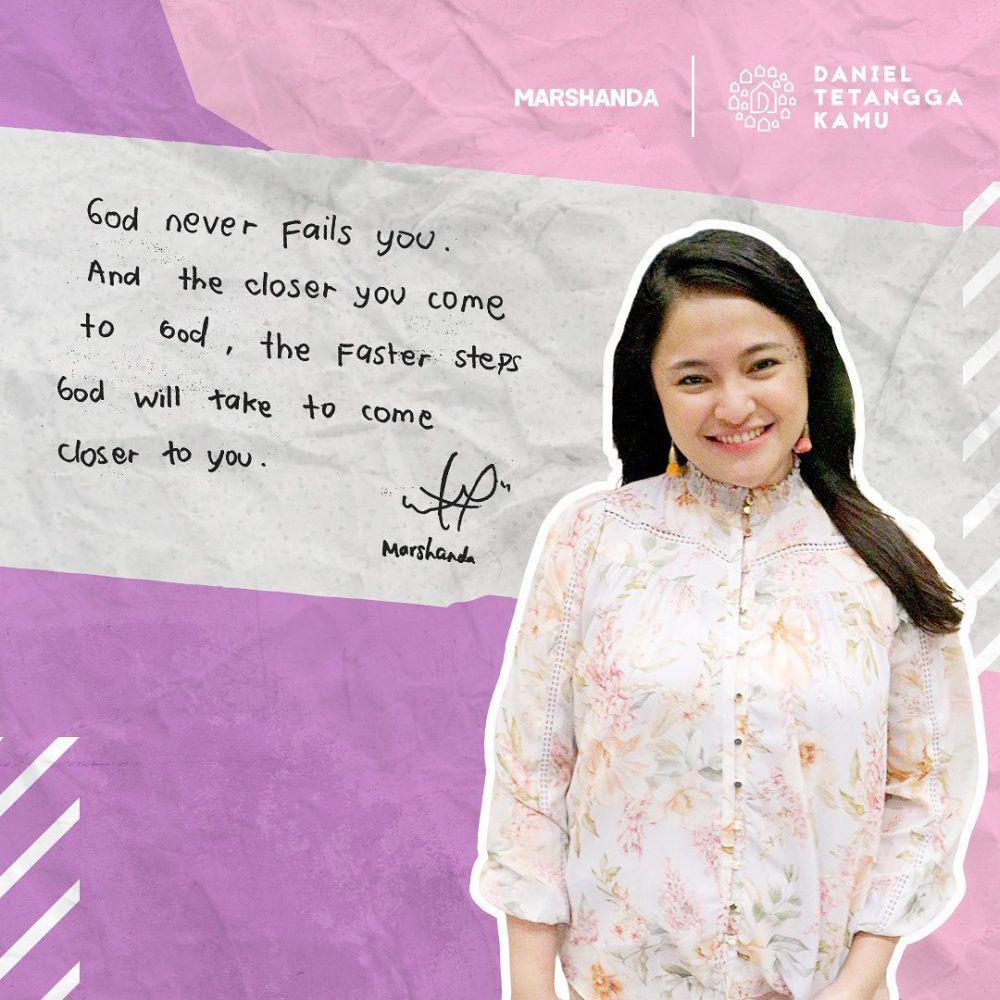 MARSHANDA
DANIEL
TETANGGA
KAMU
God never Fails you.
And the closer you come
to God, the Faster steps
God will take to come
closer to you.
Marshanda